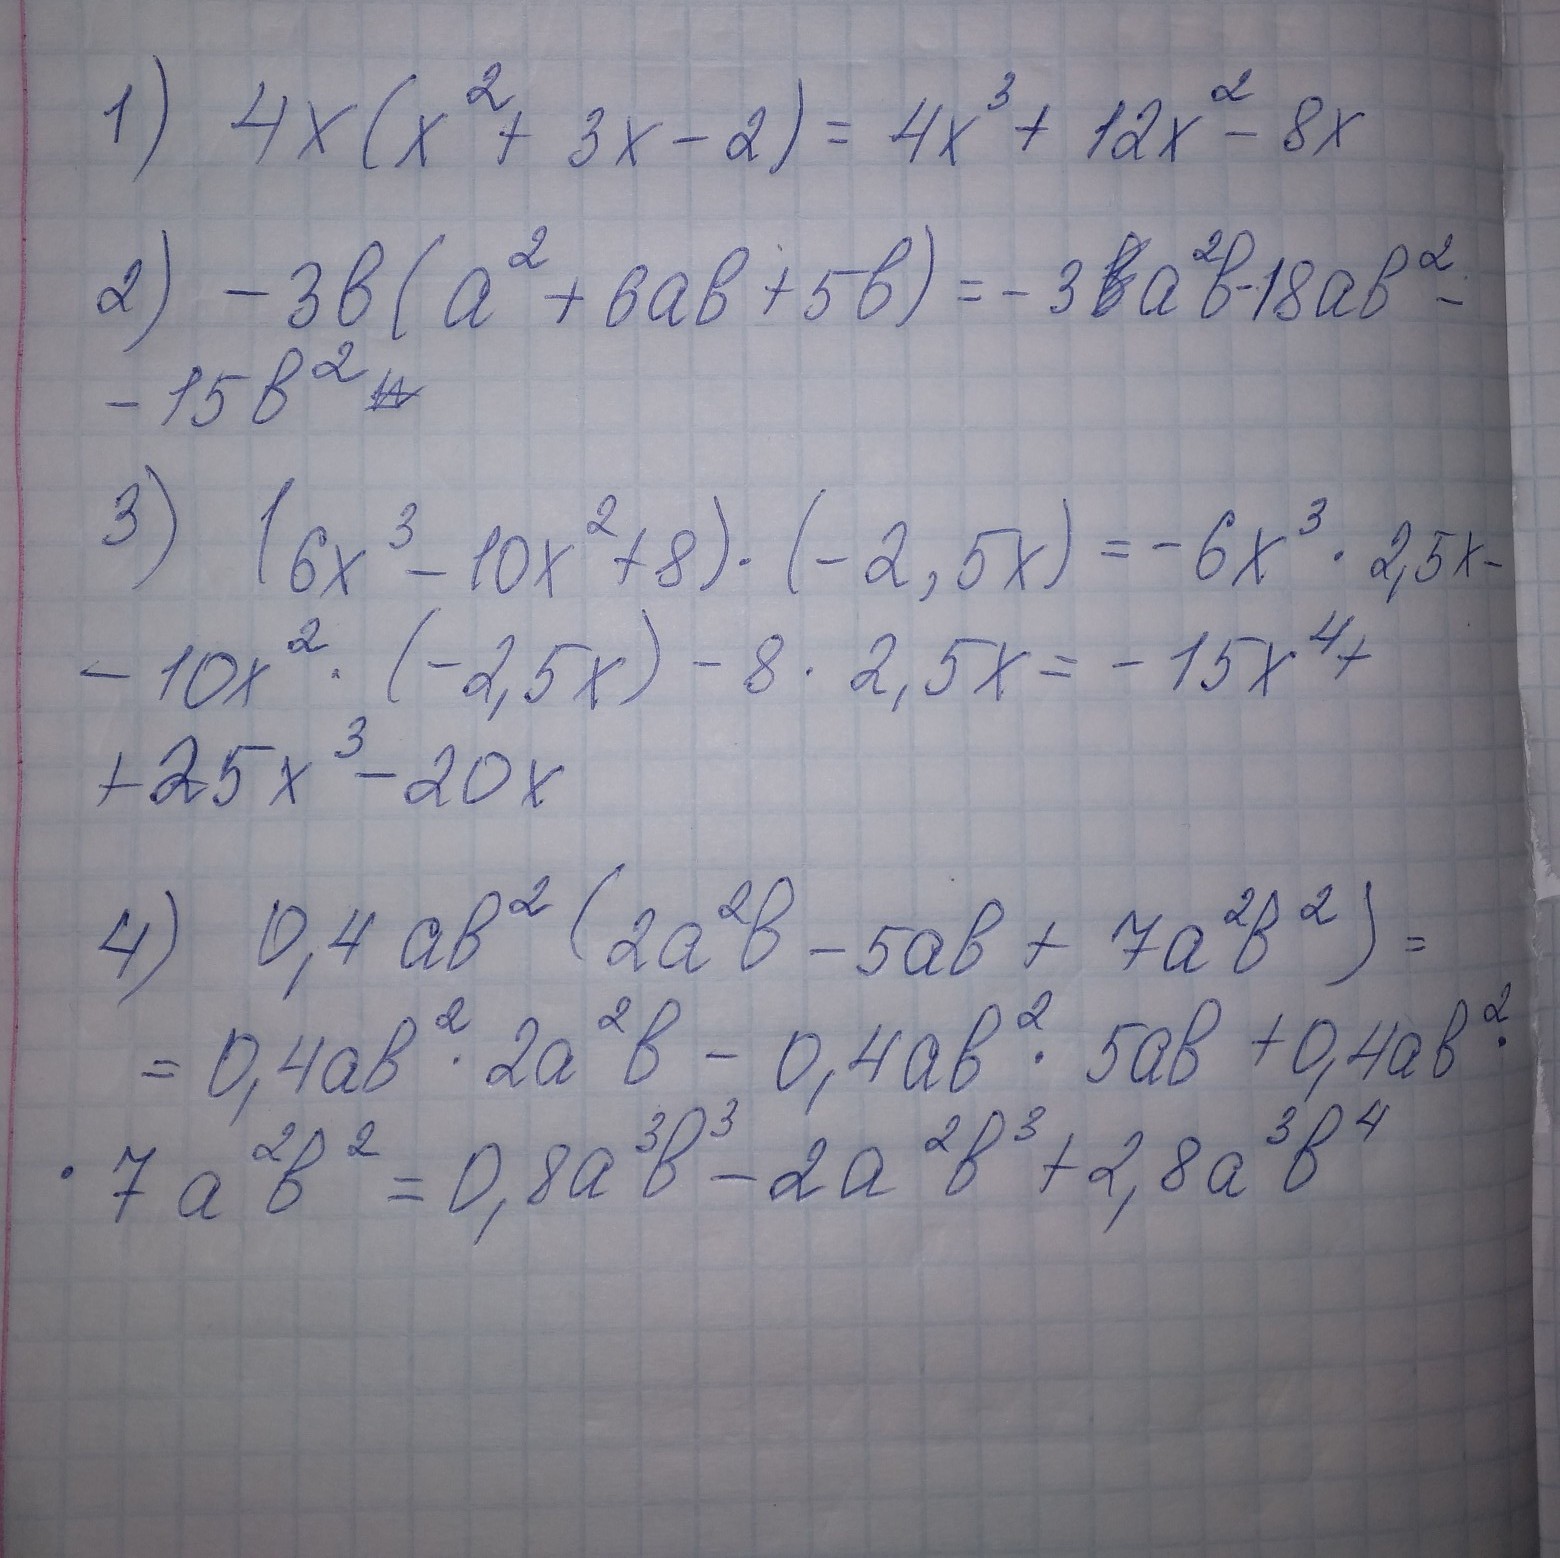 1) 4x(x²+ 3x-2)= 4x³+ 12x²- 8x
2) -3b(a²+6ab+5b)=-3a²b-18ab²-
-15b²
3) (6x³-10x²+8)·(-2,5x)=-6x³·2,5x-
-10x²·(-2,5x)-8·2,5x=-15x⁴+
+25x³-20x
4) 0,4ab²(2a²b-5ab+7a²b²)=
=0,4ab²·2a²b-0,4ab²·5ab+0,4ab²·
·7a²b²=0,8a³b³-2a²b³+2,8a³b⁴